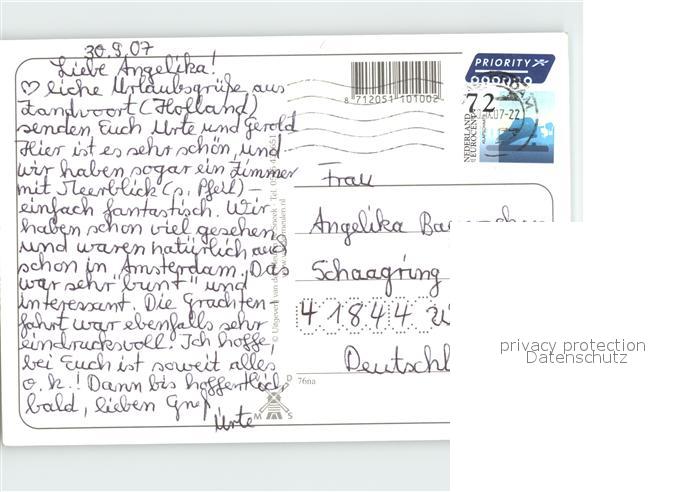 30.9.07
Liebe Angelika!
♡liche Urlaubsgrüße aus
Zandvoort (Holland)
senden Euch Urte und Gerold
Hier ist es sehr schön, und
wir haben sogar ein Zimmer
mit Meerblick (s. Pfeil) –
einfach fantastisch. Wir
haben schon viel gesehen
und waren natürlich auch
schon in Amsterdam. Das
war sehr "bunt" und
interessant. Die Grachten-
fahrt war ebenfalls sehr
eindrucksvoll! Ich hoffe,
bei Euch ist soweit alles
o.k.! Dann bis hoffentlich
bald, lieben Gruß
Urte
8 712051 101002
PRIORITY
72
NEDERLAND
EUROCENT
07-22
Frau
Angelika
Schaagring
41844
Deutschl
© Uitgeverij van der Meulen Sneek - Tel.
76na
D
M S
privacy protection
Datenschutz